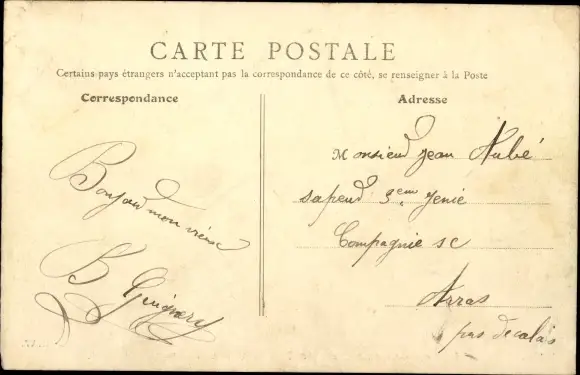 CARTE POSTALE
Certains pays étrangers n'acceptant pas la correspondance de ce côté, se renseigner à la Poste
Correspondance
Bonjour mon vieux
B
Adresse
Monsieur Jean Aubé
sapeur 3eme Genie
Compagnie
Arras
pas de calais